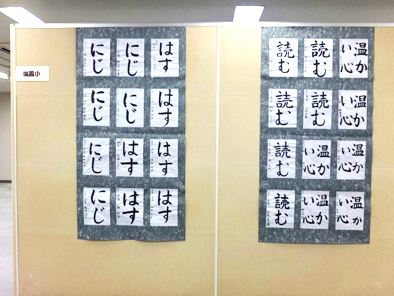 瑞鳳小
はす
にじ
にじ
はす
にじ
にじ
はす
はす
にじ
はす
はす
にじ
温か
い心
読む
読む
温か
い心
読む
読む
温か
い心
温か
い心
読む
温か
い心
温か
い心
読む